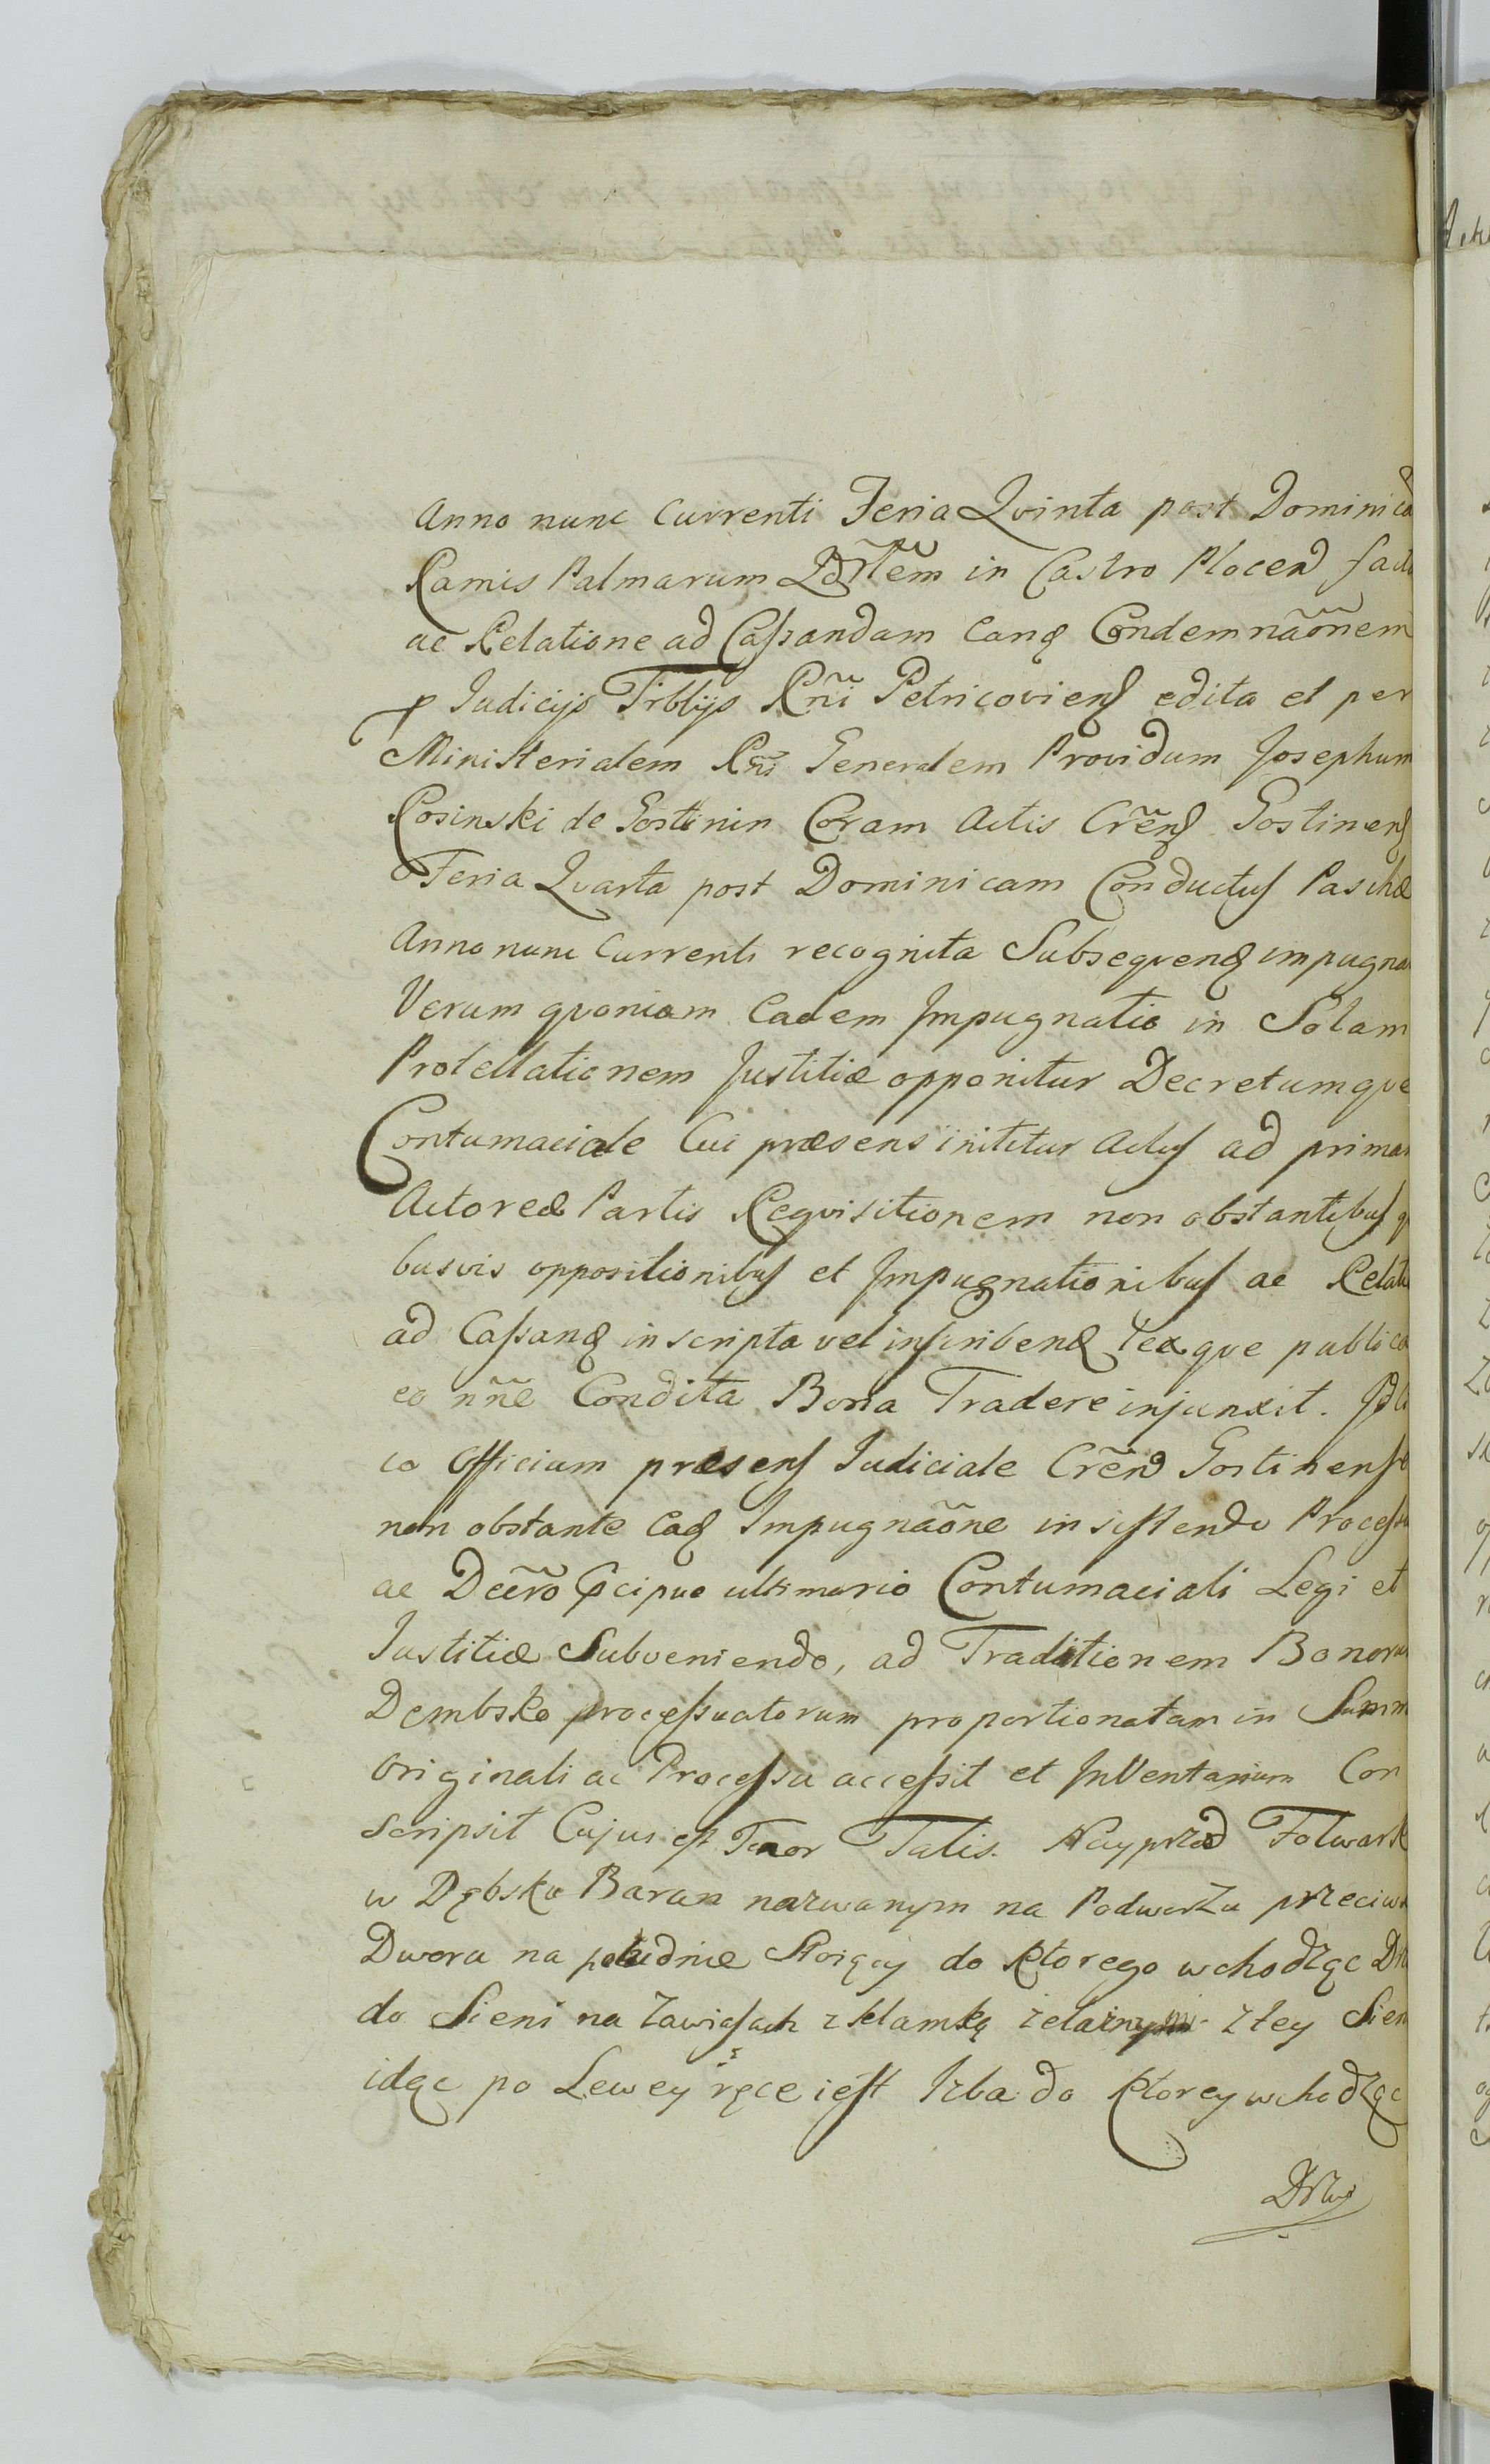 Anno nunc Currenti Feria Qvinta post Dominicā
Ramis Palmarum in Castro Plocen̄ fact
ac Relatione ad Caſsandam Eanđ Condemnãõnem
p Judicijs Trbl̃ijs Rñi Petricovienſ edita et per
Ministerialem Rñi Generalem Providum Josephum
Rosinski de Gostinin Coram Actis Crẽnſ Gostinenſ
Feria Qvarta post Dominicam Conductuſ Paschæ
Anno nunc Currenti recognita Subseqvenđ impugna
Verum qvoniam Eadem Impugnatio in Solam
Protellationem Justitiæ opponitur Decretumqve
Contumaciale Cui præsens inititur Actuſ ad prima
Actoreæ Partis Reqvisitionem non obstantibuſ q
busvis oppositionibuſ et Impugnationibuſ ac Relati
ad Caſsanđ inscripta vel inscribenđ Lexqve publica
eo nñe Condita Bona Tradere injunxit. Idcir
co Officium præsenſ Judiciale Crẽnſ Gostinense
non obstante Eađ Impugnãõne insistendo Proceſsu
ac Decr̃o pcipue ultimario Contumaciali Legi et
Justitiæ Subveniendo, ad Traditionem Bonorum
Dembsko proceſsuatorum proportionatam in Summ
Originali ac Proceſsu acceſsit et InVentarium Con
scripsit Cujus eſt Tenor Talis. Nayprzod Folwark
w Dębsku Baran nazwanym na Podworzu przeciwk
Dwora na południe Stoięcy do Ktorego wchodząc Drz
do Sieni na Zawiaſach z klamką żelaznymi z tey Sien
idąc po Lewey ręce ieſt Izba do Ktorey wchodząc
Drzwi